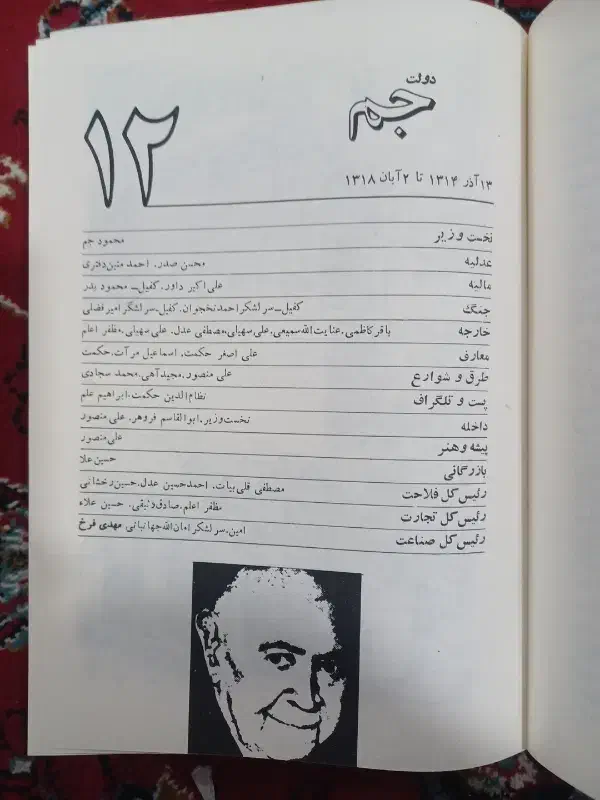 دولت
جم
۱۲
۱۳ آذر ۱۳۱۴ تا ۲ آبان ۱۳۱۸
نخست وزیر محمود جم
عدلیه محسن صدر. احمد متین‌دفتری
مالیه علی اکبر داور. کفیل_ محمود بدر
جنگ کفیل_ سرلشکر احمد نخجوان. کفیل. سرلشگر امیرفضلی
خارجه باقر کاظمی. عنایت‌الله سمیعی. علی سهیلی. مصطفی عدل. علی سهیلی. مظفر اعلم
معارف علی اصغر حکمت. اسماعیل مرآت. حکمت
طرق و شوارع علی منصور. مجید آهی. محمد سجادی
پست و تلگراف نظام‌الدین حکمت. ابراهیم علم
داخله نخست‌وزیر. ابوالقاسم فروهر. علی منصور
پیشه و هنر علی منصور
بازرگانی حسین علا
رئیس کل فلاحت مصطفی قلی بیات. احمدحسین عدل. حسین رخشانی
رئیس کل تجارت مظفر اعلم. صادق وثیقی. حسین علاء
رئیس کل صناعت امین. سرلشکر امان‌الله جهانبانی. مهدی فرخ